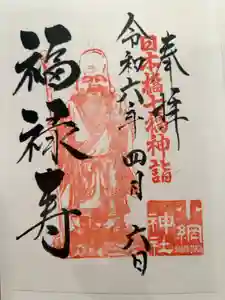 奉拝
日本橋七福神詣
令和六年四月六日
福禄寿
小網
神社